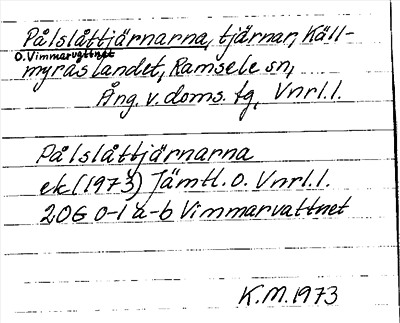 Pålslåttjärnarna, tjärnar, Käll-
O. Vimmarvattnet
myraslandet, Ramsele sn,
Ång. v. doms. tg, Vnrl. l.
Pålslåttjärnarna
ek (1973) Jämtl. o. Vnrl. l.
20G 0-1 a-b Vimmarvattnet
K.M. 1973